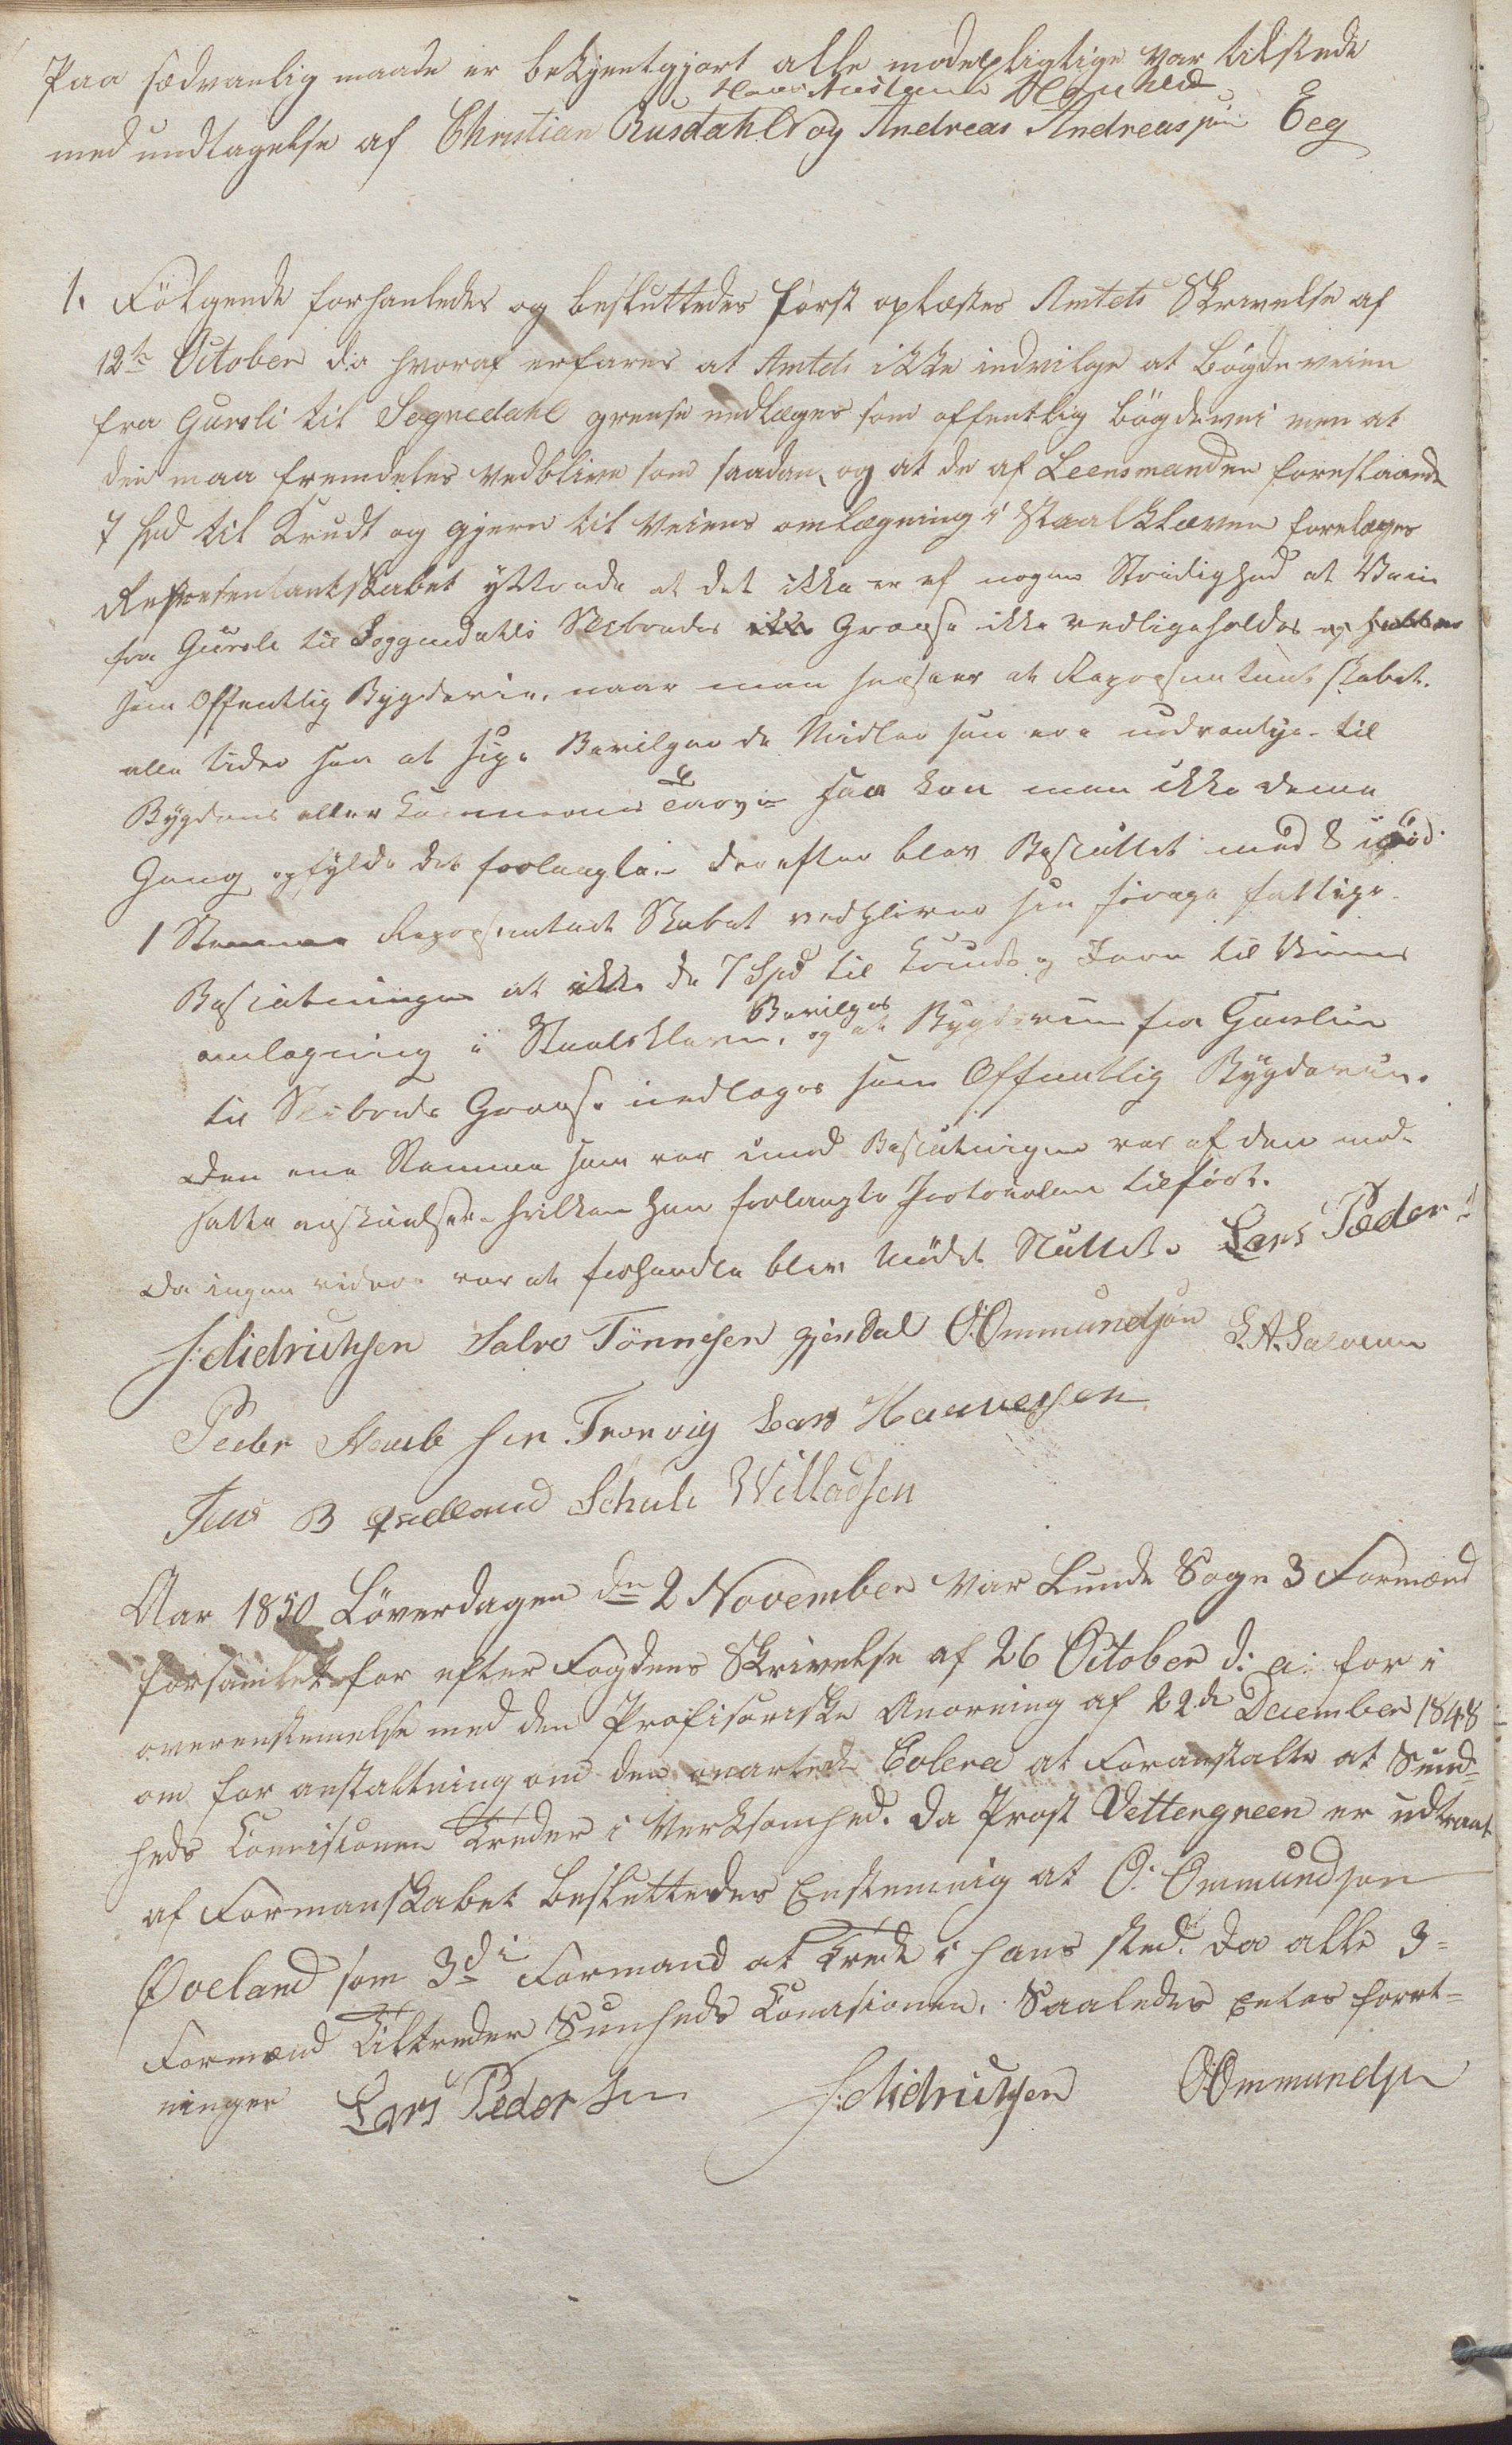 Paa sædvanlig maade er bekjentgjort alle mødepligtige var tilstede
Hans
med undtagelse af Christian Rusdahl og Andreas Andreassøn Eeg
1. Følgende forhanledes og besluttedes først oplæstes Amtets Skrivelse af
12te October d:a hvoraf erfares at Amtets ikke indvilge at bøgdeveien
fra Gursli til Sognedahl grense nedlæges som offentlig bøgdevei men at
den maa fremdeles vedblive som saadan, og at de af Leensmanden foreslaaede
7 spd til Krudt og gjern til Veiens omlægning i Staalkleven forelæges
Representantskabet yttrede at det ikke er af nogen Stridighed at Veien
fra Gursli til Soggendahls Skibredes ikke Grænse ikke vedligeholdes
som Offentlig Bygdevei, naar man seer at Repræsentantskabet
alle tider har at sige Bevilgende Midler som ere nødvendige til
Bygdens eller Communens Tarv saa kan man ikke denne
Gang opfylde det forlangte. derefter blev Besluttet med 8 imod
1 Stemme Repræsentantskabet vedblive sin forrige fattige
Beslutninger at ikke de 7 Spd til Krudt og Jern til Veiens
Bevilges
omlægning i Staalkleven, og at Bygdeveien fra Gurslie
til Skibreds Grænse nedlæges som Offentlig Bygdevei.
Den ene Stemme som var imod Beslutningen var af den mod-
satte anskuelse hvilken han forlangte Protocolen tilført.
Da ingen videre var at forhandle blev Mødet Sluttet. Lars Peder
Didrichsen Salve Tønnesen gjerdal O:Ommundsøn L. A. Salvesen
Peder Tronvig Lars Hansen
B Willadsen
Aar 1850 Løverdagen dn 2 November var Lunde Sogn 3 Formænd
forsamlet for efter Fogdens Skrivelse af 26 October d: a: for i
overenstemelse med den Profisoriske Anorning af 22de December 1848
om for anstaltning om den onartede Colera at Foranstalte at Sund-
heds Comisionen treder i Verksomhed. Da Prost Vettergreen er udtraat
af Formanskabet besluttedes Enstemmig at O: Ommundsøn
Øveland som 3de Formand at trede i hans sted. Da alle 3-
Formænd tiltreder Sunheds Comisionen. Saaledes Entes forret-
ningen Lars Pedersen Didrichsen O:Ommundsen